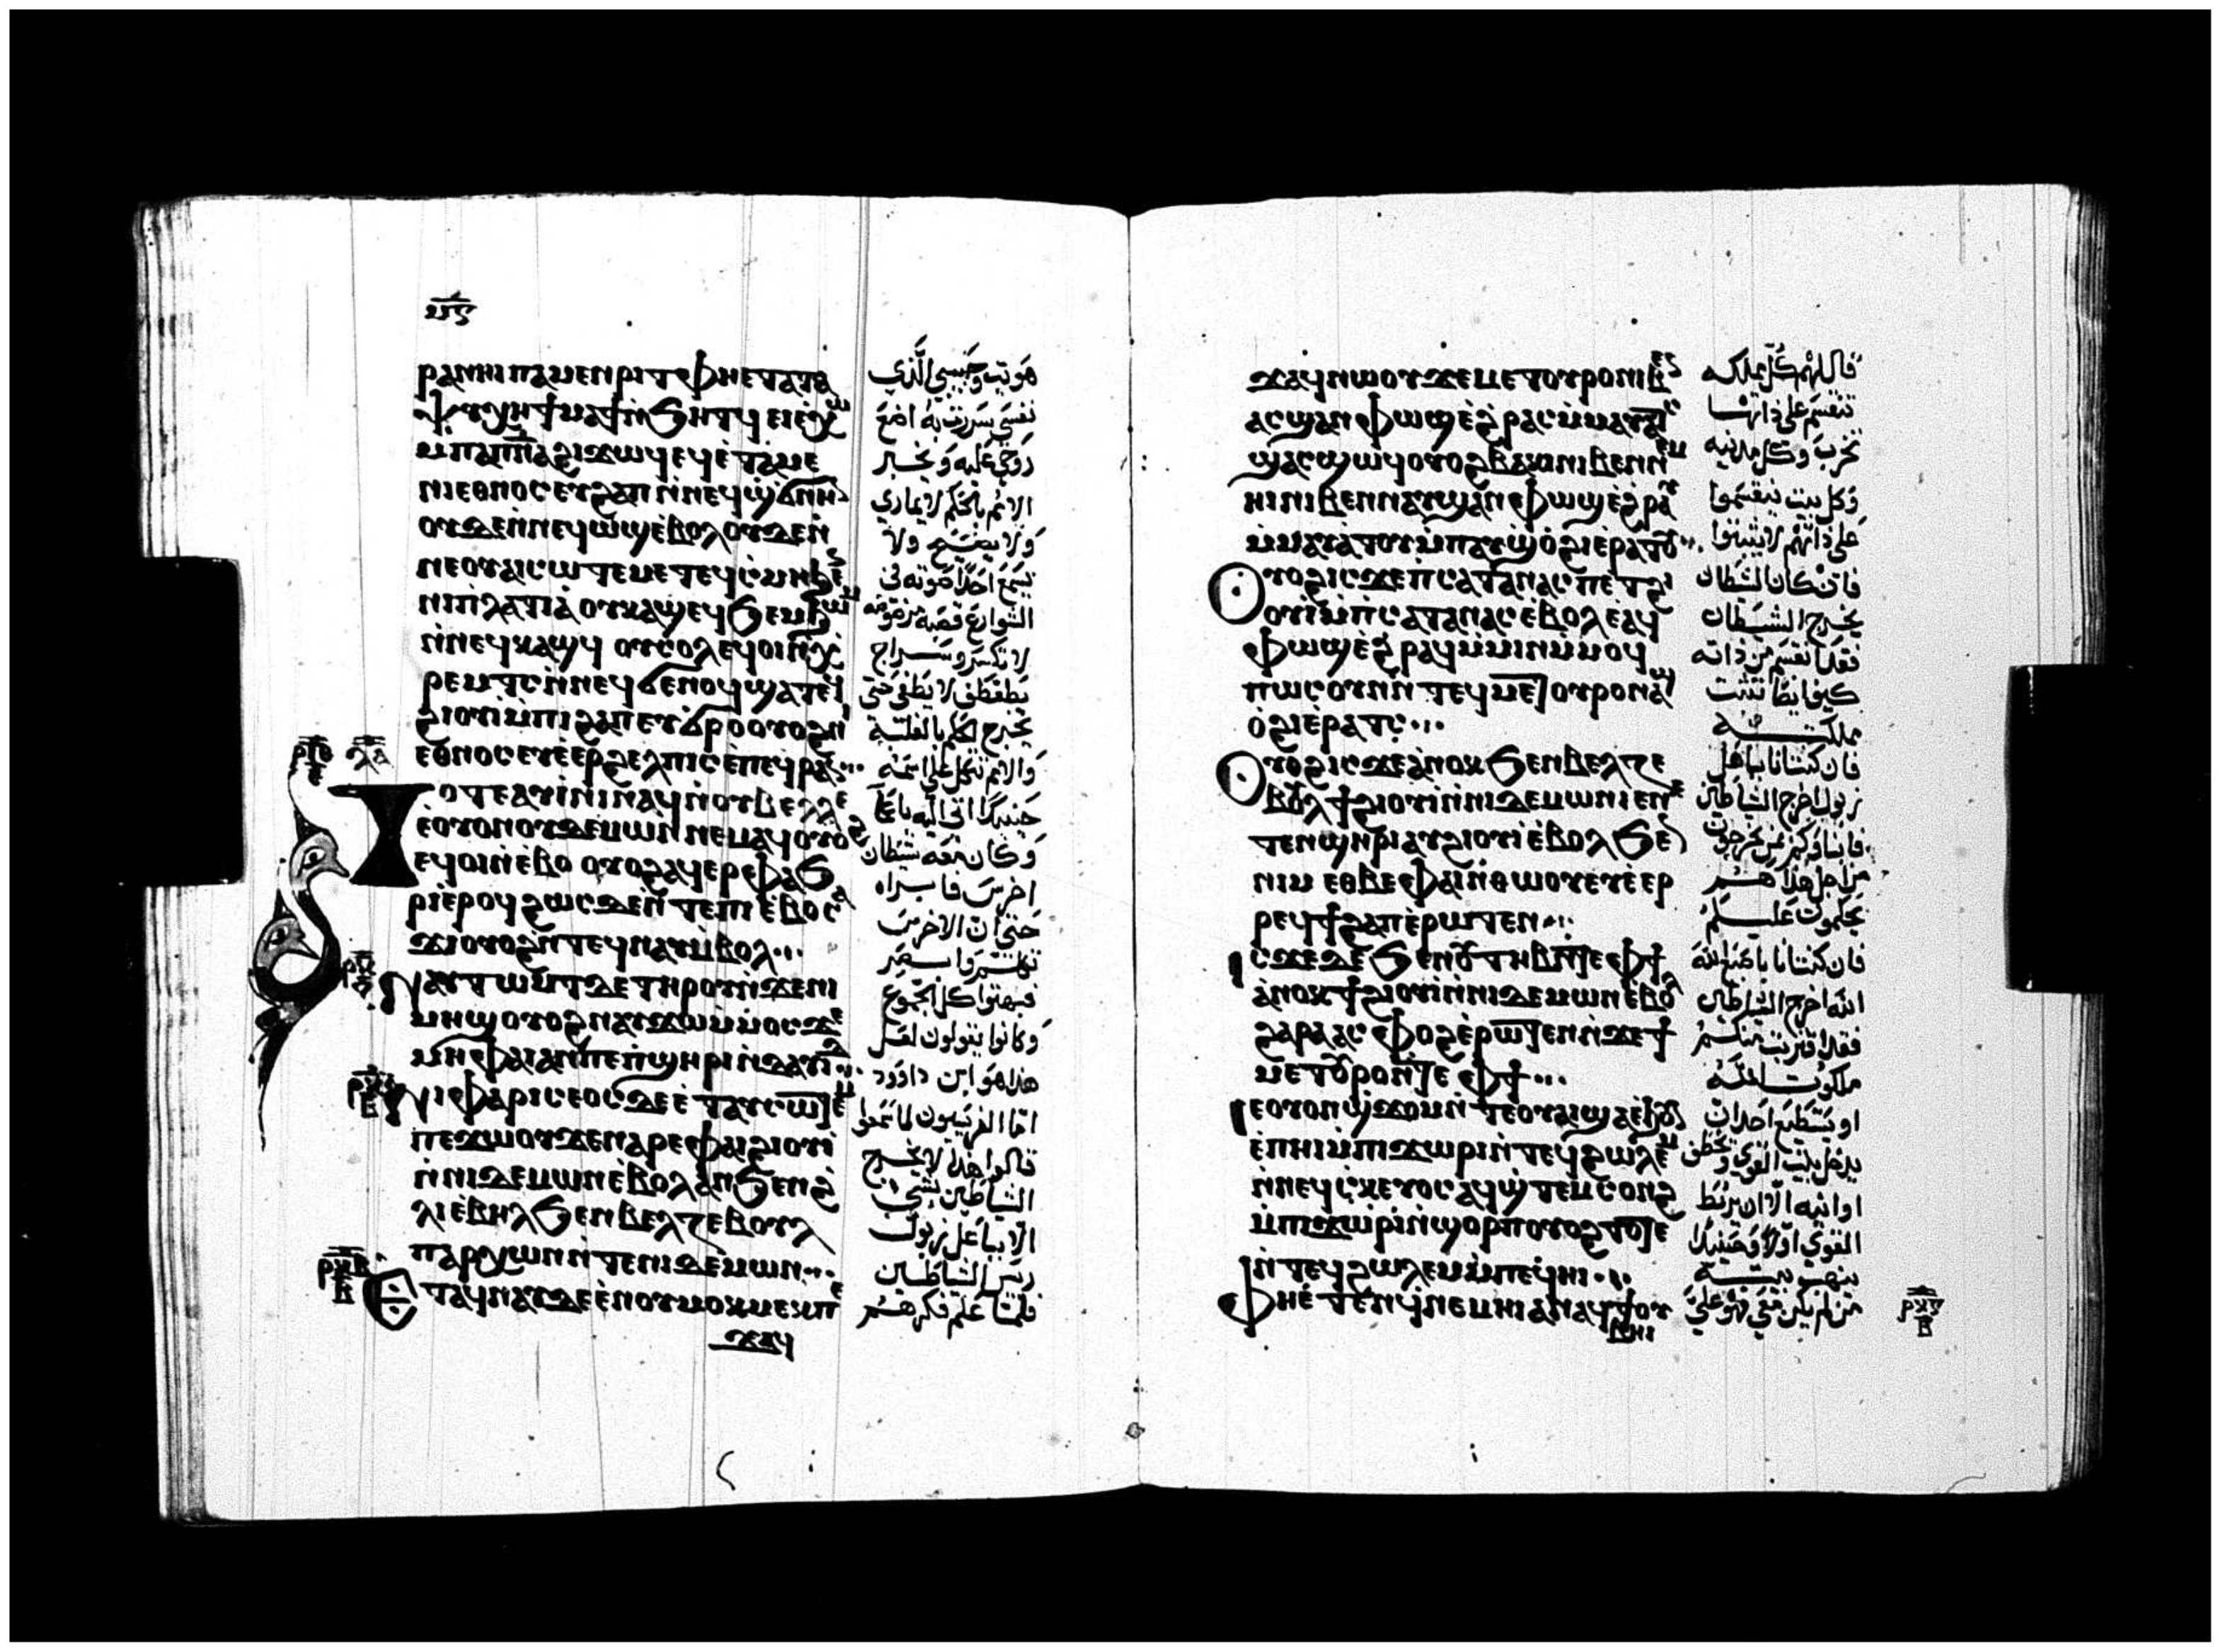 ⲙ̅ⲋ̅
ⲣⲁⲛⲏⲓ ⲡⲁⲙⲉⲛⲣⲓⲧ ⲫⲏⲉⲧⲁⲧⲁ
ⲯⲩⲭⲏ ϯⲙⲁϯ ⲛ̇ϧⲏⲧϥ ⲉⲓⲉ̇ⲭⲱ
ⲙ̇ⲡⲁⲡ̅ⲛ̅ⲁ̅ ϩⲓϫⲱϥ ⲉϥⲉ̇ⲧⲁⲙⲉ
ⲛⲓⲉⲑⲛⲟⲥ ⲉⲩϩⲁⲡ ⲛ̇ⲛⲉϥϣ̇ϭⲛⲏⲛ
ⲟⲩⲇⲉ ⲛ̇ⲛⲉϥⲱϣ ⲉ̇ⲃⲟⲗ ⲟⲩⲇⲉ ⲛ̇
ⲛⲉⲟⲩⲁⲓ ⲥⲱⲧⲉⲙ ⲉⲧⲉϥⲥⲙⲏ ϧⲉⲛ
ⲛⲓⲡⲗⲁⲧⲓⲁ̇ ⲟⲩⲕⲁϣ ⲉϥϧⲉⲙϧⲱⲙ
ⲛ̇ⲛⲉϥⲕⲁϣϥ ⲟⲩⲥⲟⲗ ⲉϥⲟⲓ ⲛ̇ⲭ
ⲣⲉⲙⲧⲥ ⲛ̇ⲛⲉϥϭⲉⲛⲟϥ ϣⲁⲧⲉϥ
ϩⲓⲟⲩⲓ̇ ⲙ̇ⲡⲓϩⲁⲡ ⲉⲩϭⲣⲟ ⲟⲩⲟϩ ⲛⲓ
ⲉⲑⲛⲟⲥ ⲉⲩⲉ̇ⲉⲣϩⲉⲗⲡⲓⲥ ⲉ̇ⲡⲉϥⲣⲁⲛ
ⲣ̅ⲓ̅ⲑ̅ ⲗ̅ⲁ̅
ⲧⲟⲧⲉ ⲁⲩⲓ̇ⲛⲓ ⲛⲁϥ ⲛ̇ⲟⲩⲃⲉⲗⲗⲉ
ⲉ̇ⲟⲩⲟⲛ ⲟⲩⲇⲉⲙⲱⲛ ⲛⲉⲙⲁϥ ⲟⲩⲟϩ
ⲉϥⲟⲓ ⲛ̇ⲉ̇ⲃⲟ ⲟⲩⲟϩ ⲁϥⲉⲣⲫⲁϧ
ⲣⲓ ⲉ̇ⲣⲟϥ ϩⲱⲥⲇⲉ ⲛ̇ⲧⲉⲡⲓⲉ̇ⲃⲟ ⲥⲁ
ϫⲓ ⲟⲩⲟϩ ⲛ̇ⲧⲉϥⲛⲁⲩ ⲙ̇ⲃⲟⲗ
ⲛⲁⲩⲧⲱⲙⲧ ⲇⲉ ⲧⲏⲣⲟⲩ ⲛ̇ϫⲉⲛⲓ
ⲙⲏϣ ⲟⲩⲟϩ ⲛⲁⲩϫⲱ ⲙ̇ⲙⲟⲥ ϫⲉ
ⲙⲏ ⲫⲁⲓ ⲁⲛ ⲡⲉ ⲡ̇ϣⲏⲣⲓ ⲛ̇ⲇⲁⲩⲓⲇ
ⲛⲓⲫⲁⲣⲓⲥⲉⲟⲥ ⲇⲉ ⲉ̇ⲧⲁⲩⲥⲱⲧⲉⲙ
ⲡⲉϫⲱⲟⲩ ϫⲉ ⲛⲁⲣⲉ ⲫⲁⲓ ϩⲓⲟⲩⲓ̇
ⲛ̇ⲛⲓⲇⲉⲙⲱⲛ ⲉ̇ⲃⲟⲗ ⲁⲛ ϧⲉⲛ ϩ
ⲗⲓ ⲉ̇ⲃⲏⲗ ϧⲉⲛ ⲃⲉⲗⲍⲉⲃⲟⲩⲗ
ⲡⲁⲣⲭⲱⲛ ⲛ̇ⲧⲉⲛⲓⲇⲉⲙⲱⲛ
ⲉⲧⲁϥⲛⲁⲩ ⲇⲉ ⲉ̇ⲛⲟⲩⲙⲟⲕⲙⲉⲕ ⲡⲉ
ϫⲁϥ
هويت وحبيبي الذي
نفسي سرت به اضع
روحي عليه ويخبر
الامم بالحكم لا يماري
ولا يصيح ولا
يسمع احد صوته في
الشوارع قصبة مرضوضه
لا تكسر وسراج
يطفطف لا يطفي حتي
يخرج الحكم بالغلبة
والامم تتكل علي اسمه
حينيذ اتي اليه باعمي
وكان معه شيطان
اخرس فابراه
حتي ان الاخرس
تكلم وابصر
فبهتوا كل الجموع
وكانوا يقولون لعل
هذا هو ابن داوود
اما الفريسيون لما سمعوا
قالوا هذا لا يخرج
الشياطين بشي
الا بباعل زبول
ريس الشياطين
فلما علم فكرهم
ϫⲁϥ ⲛⲱⲟⲩ ϫⲉ ⲙⲉⲧⲟⲩⲣⲟ ⲛⲓⲃⲉⲛ
ⲁⲥϣⲁⲛⲫⲱϣ ⲉ̇ϩⲣⲁⲥ ⲙ̇ⲙⲁⲩⲁⲧⲥ
ϣⲁⲥϣⲱϥ ⲟⲩⲟϩ ⲃⲁⲕⲓ ⲛⲓⲃⲉⲛ ⲛⲉⲙ
ⲏⲓ ⲛⲓⲃⲉⲛ ⲛⲁⲩϣⲁⲛⲫⲱϣ ⲉ̇ϩⲣⲁⲩ
ⲙ̇ⲙⲁⲩⲁⲧⲟⲩ ⲙ̇ⲡⲁⲩϣ̇ⲟ̇ϩⲓ ⲉ̇ⲣⲁⲧⲟⲩ
ⲟⲩⲟϩ ⲓⲥϫⲉ ⲡ̇ⲥⲁⲧⲁⲛⲁⲥ ⲡⲉⲧϩⲓ
ⲟⲩⲓ̇ ⲙ̇ⲡ̇ⲥⲁⲧⲁⲛⲁⲥ ⲉ̇ⲃⲟⲗ ⲉ̇ⲁϥ
ⲫⲱϣ ⲉ̇ϩⲣⲁϥ ⲙ̇ⲙⲓⲛⲙ̇ⲙⲟϥ
ⲡⲱⲥ ⲟⲩⲛ ⲛ̇ⲧⲉϥⲙⲉⲧⲟⲩⲣⲟ ⲛⲁϣ
ⲟ̇ϩⲓ ⲉ̇ⲣⲁⲧⲥ
ⲟⲩⲟϩ ⲓⲥϫⲉ ⲁ̇ⲛⲟⲕ ϧⲉⲛ ⲃⲉⲗⲍⲉ
ⲃⲟⲩⲗ ϯϩⲓⲟⲩⲓ̇ ⲛ̇ⲛⲓⲇⲉⲙⲱⲛ ⲓⲉ ⲛⲉ
ⲧⲉⲛϣⲏⲣⲓ ⲁⲩϩⲓⲟⲩⲓ̇ ⲉ̇ⲃⲟⲗ ϧⲉⲛ
ⲛⲓⲙ ⲉⲑⲃⲉⲫⲁⲓ ⲛ̇ⲑⲱⲟⲩ ⲉⲩⲉ̇ⲉⲣ
ⲣⲉϥϯϩⲁⲡ ⲉ̇ⲣⲱⲧⲉⲛ
ⲓⲥϫⲉ ⲇⲉ ϧⲉⲛ ⲟⲩⲧⲏⲃ ⲛ̇ⲧⲉ ⲫϯ
ⲁ̇ⲛⲟⲕ ϯϩⲓⲟⲩⲓ̇ ⲛ̇ⲛⲓⲇⲉⲙⲱⲛ ⲉ̇ⲃⲟⲗ
ϩⲁⲣⲁ ⲁⲥⲫⲟϩ ⲉ̇ⲣⲱⲧⲉⲛ ⲛ̇ϫⲉϯ
ⲙⲉⲧⲟⲩⲣⲟ ⲛ̇ⲧⲉ ⲫϯ
ⲓⲉ ⲟⲩⲟⲛϣ̇ϫⲟⲙ ⲛ̇ⲧⲉⲟⲩⲁⲓ ϣⲉ ⲉ̇ϧⲟⲩⲛ
ⲉ̇ⲡⲏⲓ ⲙ̇ⲡⲓϫⲱⲣⲓ ⲛ̇ⲧⲉϥϩⲱⲗⲉⲙ
ⲛ̇ⲛⲉϥⲥⲕⲉⲩⲟⲥ ⲁϥϣ̇ⲧⲉⲙⲥⲟⲛϩ
ⲙ̇ⲡⲓϫⲱⲣⲓ ⲛ̇ϣⲟⲣⲡ ⲟⲩⲟϩ ⲧⲟⲧⲉ
ⲛ̇ⲧⲉϥϩⲱⲗⲉⲙ ⲙ̇ⲡⲉϥⲏⲓ
ⲫⲏⲉ̇ⲧⲉⲛϥ̇ⲛⲉⲙⲏⲓ ⲁⲛ ⲁϥϯ ⲟⲩ
ⲃⲏⲓ
قال لهم كل مملكه
تنقسم علي ذاتها
تخرب وكل مدينه
وكل بيت ينقسموا
علي ذاتهم لا يثبتوا
فان كان الشيطان
يخرج الشيطان
فقد انقسم من ذاته
كيف ايضا تثبت
مملكته
فان كنت انا بباعل
زبول اخرج الشياطين
فابناوكم بمن يخرجون
من اجل هذا هم
يحكمون عليكم
فان كنت انا باصبع الله
الله اخرج الشياطين
فقد اقتربت منكم
ملكوت الله
او يستطيع احد ان
يدخل بيت القوي ويخطف
اوانيه الا ان يربط
القوي اولا وحينيذ
ينهب بيته
من لم يكن معي فهو علي